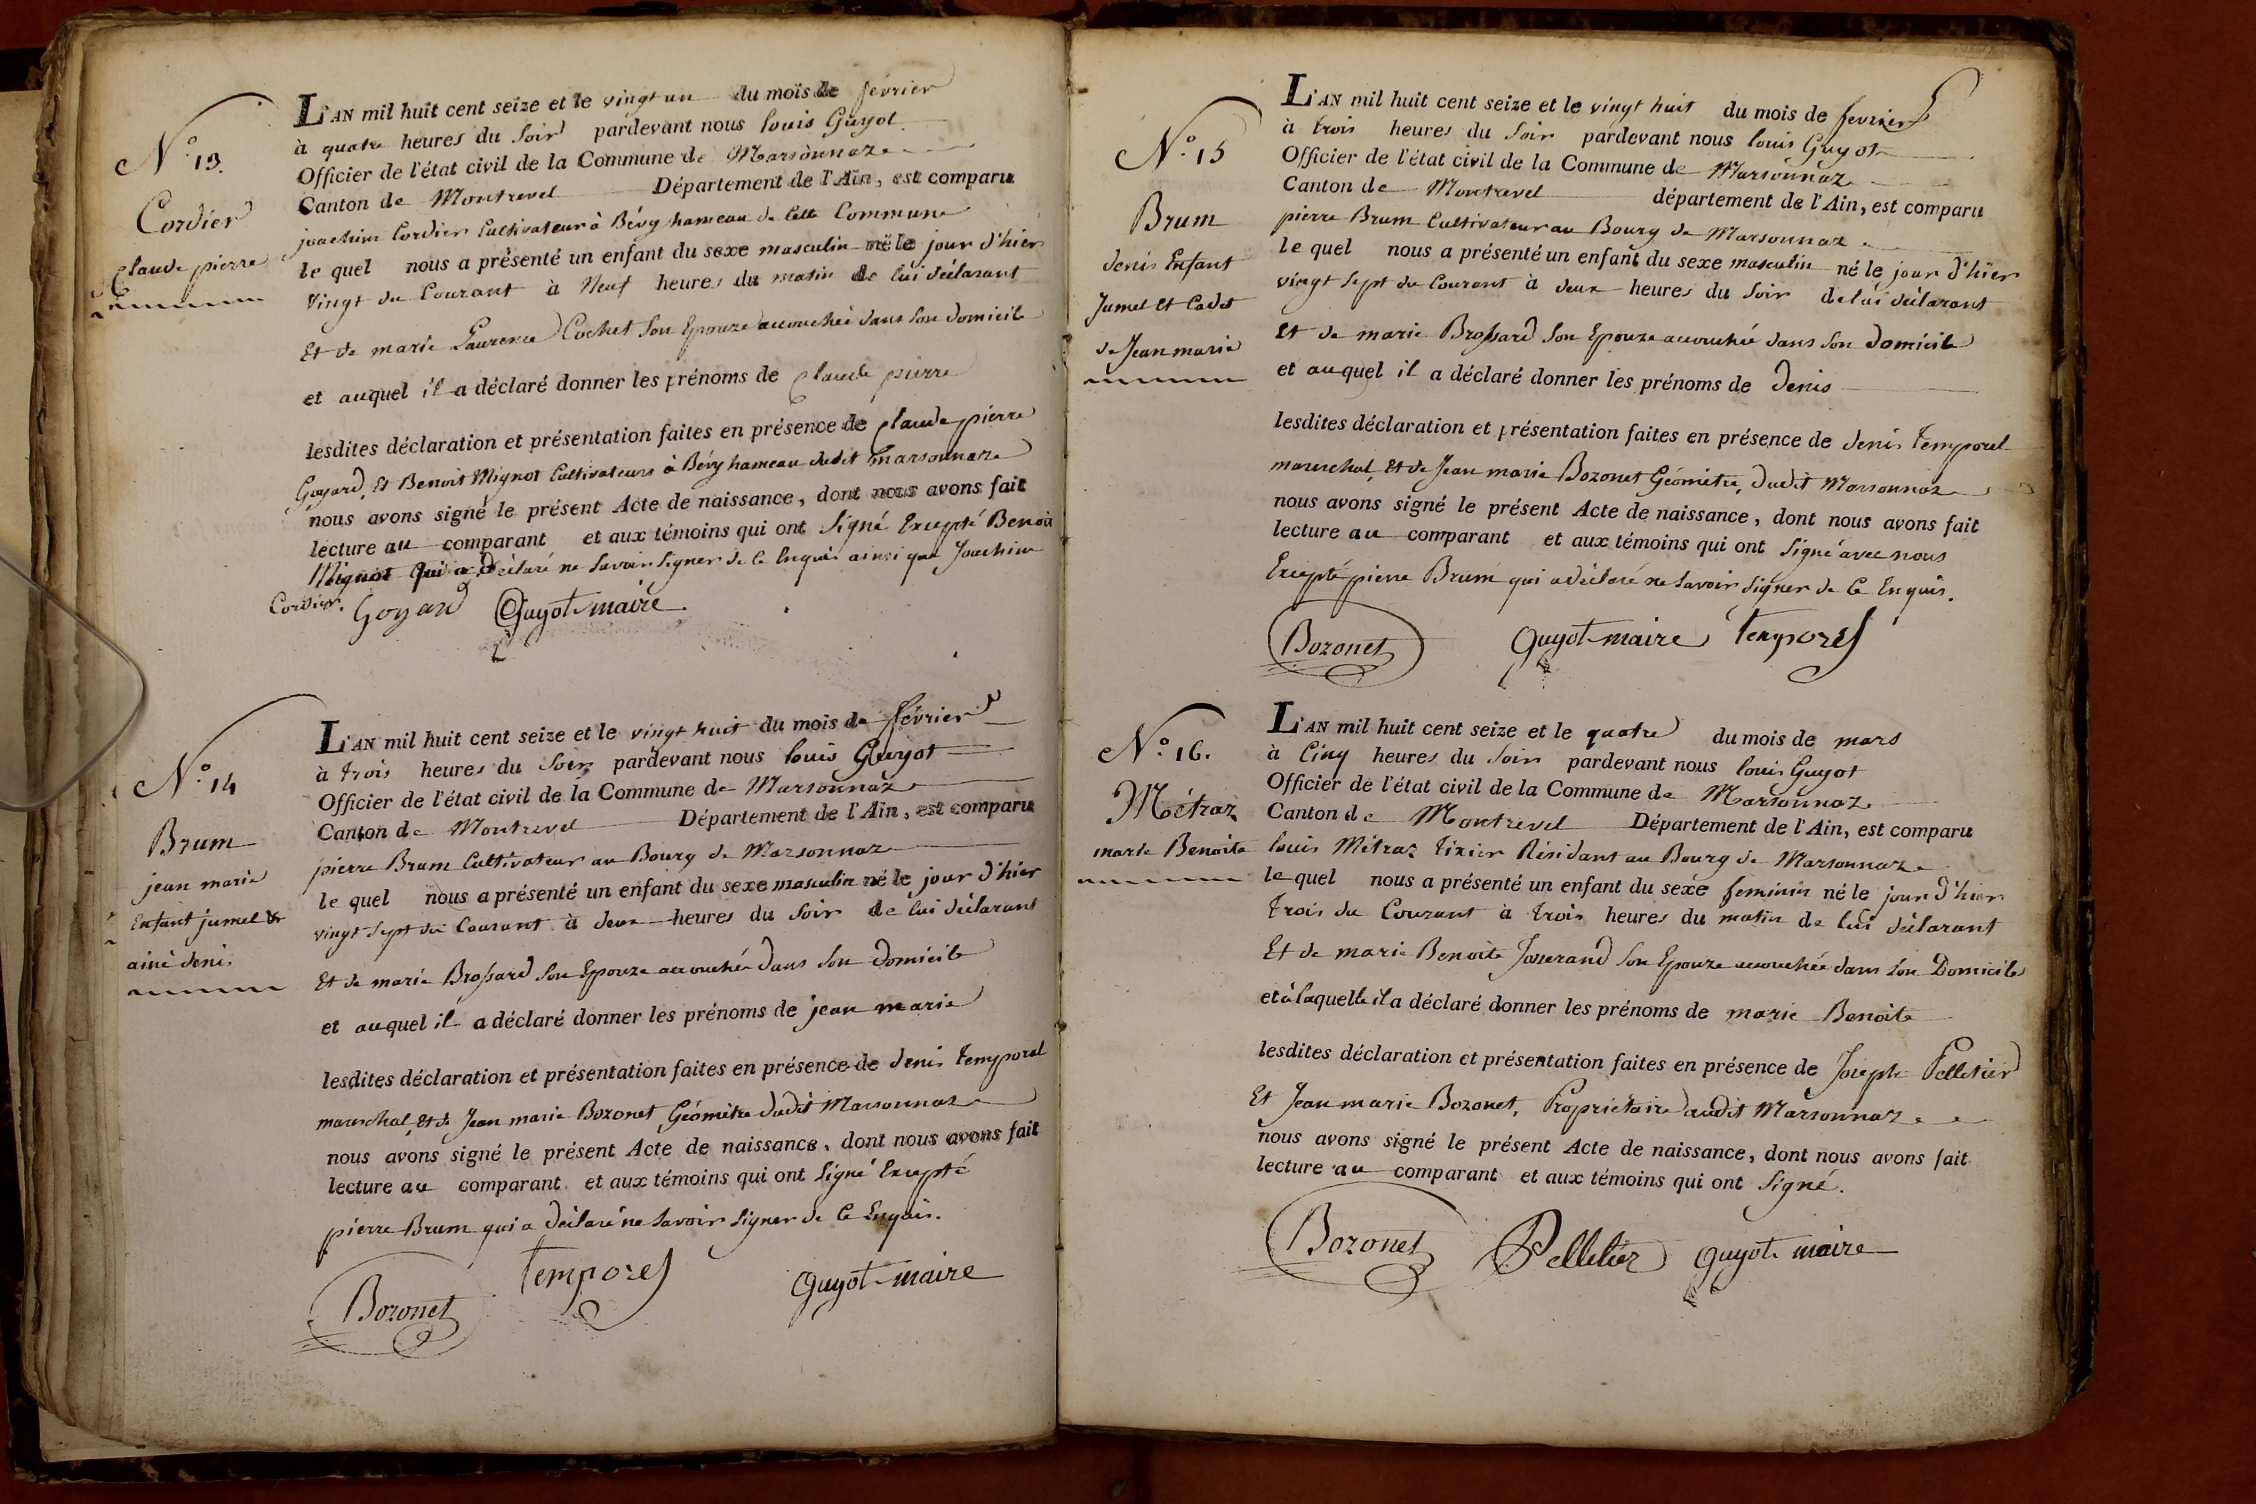 N.o 13.
Cordier
Claude pierre
L'AN mil huit cent seize et le vingt un du mois de février
à quatre heures du soir pardevant nous louis Guyot
Officier de l'état civil de la Commune de Marsonnaz
Canton de Montrevel Département de l'Ain, est comparu
joachim Cordier Cultivateur à Bévy hameau de cette Commune
le quel nous a présenté un enfant du sexe masculin né le jour d'hier
vingt du Courant à Neuf heures du matin de lui déclarant
Et de marie Laurence Cochet son Epouze accouchée dans son domicile
et auquel il a déclaré donner les prénoms de Claude pierre
lesdites déclaration et présentation faites en présence de Claude pierre
Goyard, Et Benoit Mignot Cultivateurs à Bévy hameau dudit Marsonnaz
nous avons signé le présent Acte de naissance, dont nous avons fait
lecture au comparant et aux témoins qui ont Signé Excepté Benoit
Mignot qui a Déclaré ne Savoir Signer de ce Enquis ainsi que Joachim
Cordier. Goyard Guyot maire
N.o 14
Brum
jean marie
Enfant jumel &
ainé deni.
L'AN mil huit cent seize et le vingt huit du mois de février
à trois heures du Soir pardevant nous louis Guyot
Officier de l'état civil de la Commune de Marsonnaz
Canton de Montrevel Département de l'Ain, est comparu
pierre Brum Cultivateur au Bourg de Marsonnaz
le quel nous a présenté un enfant du sexe masculin né le jour d'hier
vingt Sept du Courant à deux heures du Soir de lui déclarant
Et de marie Brossard son Epouze accouchée dans son domicile
et auquel il a déclaré donner les prénoms de jean marie
lesdites déclaration et présentation faites en présence de denis temporel
mareschal, Et de Jean marie Bozonet Géomètre dudit Marsonnaz
nous avons signé le présent Acte de naissance, dont nous avons fait
lecture au comparant et aux témoins qui ont Signé Excepté
pierre Brum qui a déclaré ne Savoir Signer de Ce Enquis.
Bozonet temporel Guyot maire
N.o 15
Brum
denis Enfant
Jumel Et Cadet
de Jean marie
L'AN mil huit cent seize et le vingt huit du mois de fevrier
à trois heures du Soir pardevant nous louis Guyot
Officier de l'état civil de la Commune de Marsonnaz
Canton de Montrevel département de l'Ain, est comparu
pierre Brum Cultivateur au Bourg de Marsonnaz
le quel nous a présenté un enfant du sexe masculin né le jour d'hier
vingt Sept du Courant à deux heures du Soir de lui déclarant
Et de marie Brossard Son Epouze accouchée dans Son domicile
et auquel il a déclaré donner les prénoms de denis
lesdites déclaration et présentation faites en présence de denis temporel
mareschal, Et de Jean marie Bozonet Géomètre, dudit Marsonnaz
nous avons signé le présent Acte de naissance, dont nous avons fait
lecture au comparant et aux témoins qui ont Signé avec nous
Excepté pierre Brum qui a déclaré ne Savoir Signer de Ce Enquis.
Bozonet Guyot maire temporel
N.o 16.
Métraz
marie Benoite
L'AN mil huit cent seize et le quatre du mois de mars
à Cinq heures du Soir pardevant nous louis Guyot
Officier de l'état civil de la Commune de Marsonnaz
Canton de Montrevel Département de l'Ain, est comparu
louis Métraz tixier Résidant au Bourg de Marsonnaz
le quel nous a présenté un enfant du sexe feminin né le jour d'hier
trois du Courant à trois heures du matin de lui déclarant
Et de marie Benoite Josserand Son Epouze accouchée dans Son Domicile
et à laquelle il a déclaré donner les prénoms de marie Benoite
lesdites déclaration et présentation faites en présence de Joseph Pelletier
Et Jean marie Bozonet, Propriétaire audit Marsonnaz
nous avons signé le présent Acte de naissance, dont nous avons fait
lecture au comparant et aux témoins qui ont Signé.
Bozonet Pelletier Guyot maire